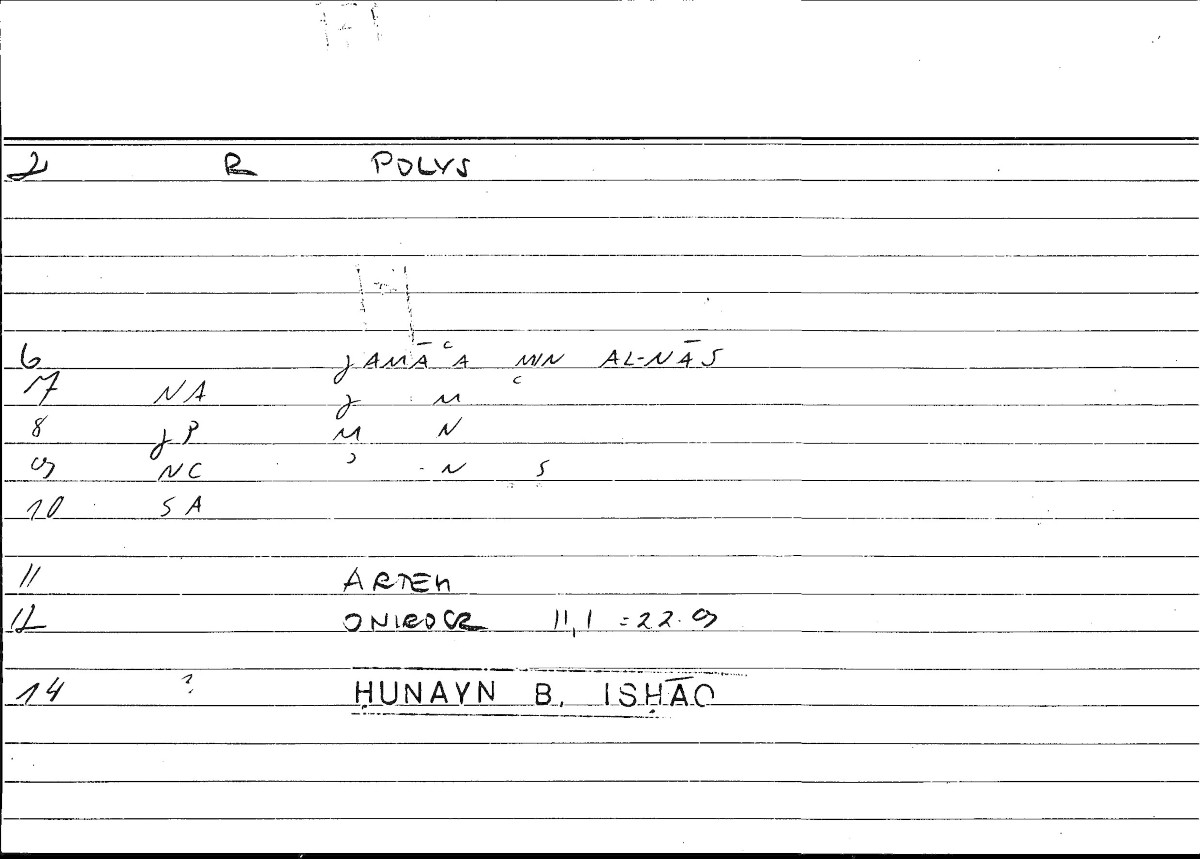 2 R POLYS
6 JAMĀʿA MIN AL-NĀS
7 NA J M ʿ
8 JP M N
9 NC ʾ N S
10 SA
11 ARTEM
12 ONIROCR II,1 = 22.9
14 ? ḤUNAYN B. ISḤĀQ